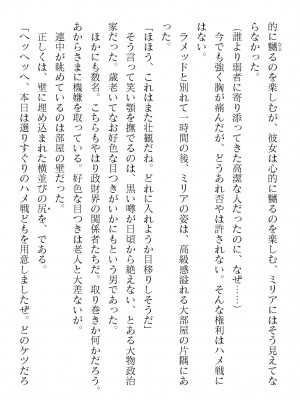 的に嬲るのを楽しむが、彼女は心的に嬲るのを楽しむ、ミリアにはそう見えてな
らなかった。
(誰より弱者に寄り添ってきた高潔な人だったのに、なぜ……)
今でも強く胸が痛んだが、どうあれ否やは許されない。そんな権利はハメ戦に
ありはしないのだ。
ラメッドと別れて一時間の後、ミリアの姿は、高級感溢れる大部屋の片隅にあ
った。
「ほほう、これはまた壮観だね。どれに入れようか目移りしそうだ」
そう言って笑い顎を撫でるのは、黒い噂が日頃から絶えない、とある大物政治
家だった。歳老いてなお好色な目つきがいかにもという男であった。
ほかにも数名。こちらもやはり政財界の関係者たちだ。取り巻きか何かだろう。
あからさまに機嫌を取っている。好色な目つきは老人と大差ないが。
連中が眺めているのは部屋の壁だった。
正しくは、壁に埋め込まれた横並びの尻を、である。
「ヘッヘッヘ、本日は選りすぐりのハメ戦どもを用意しましたぜ。どのケツだろ